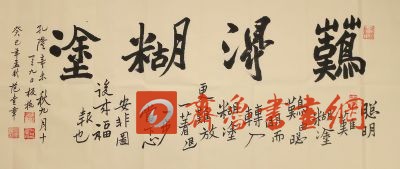 難得糊塗
聰明
難
糊塗
難
而
轉入
糊塗
更難放
著退
心
安非圖
後來福
報也
乾隆辛未秋九月十
有九日板橋
癸巳年孟秋
書畫網